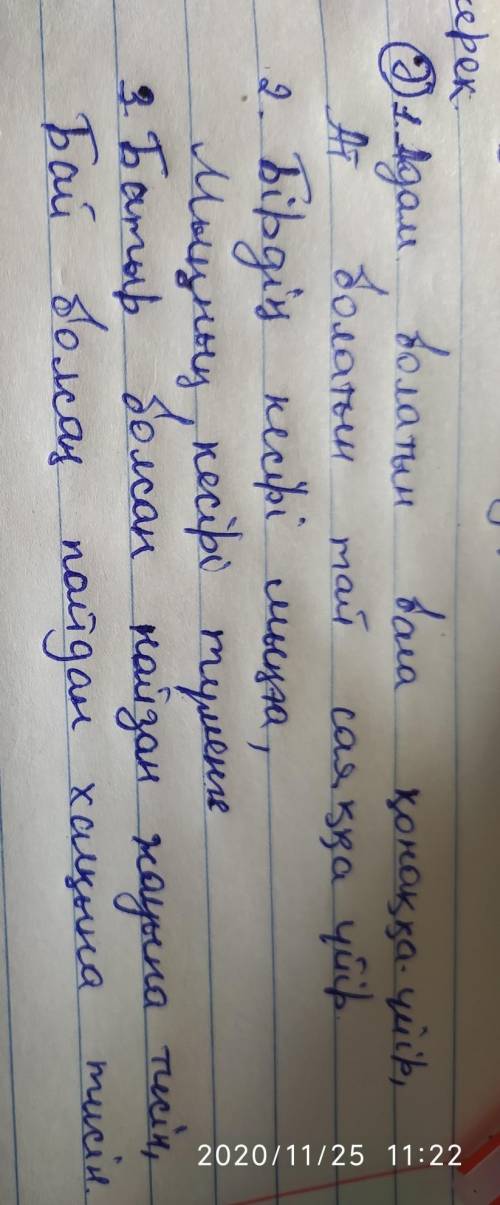 керек.
2) 1. Адам болатын бала қонаққа үйір,
Ат болатын тай саяққа үйір.
2. Бірдің кесірі мыңға,
Мыңның кесірі түменге
3. Батыр болсан найзан жауына тисін,
Бай болсаң пайдан халқына тисін.
2020/11/25 11:22